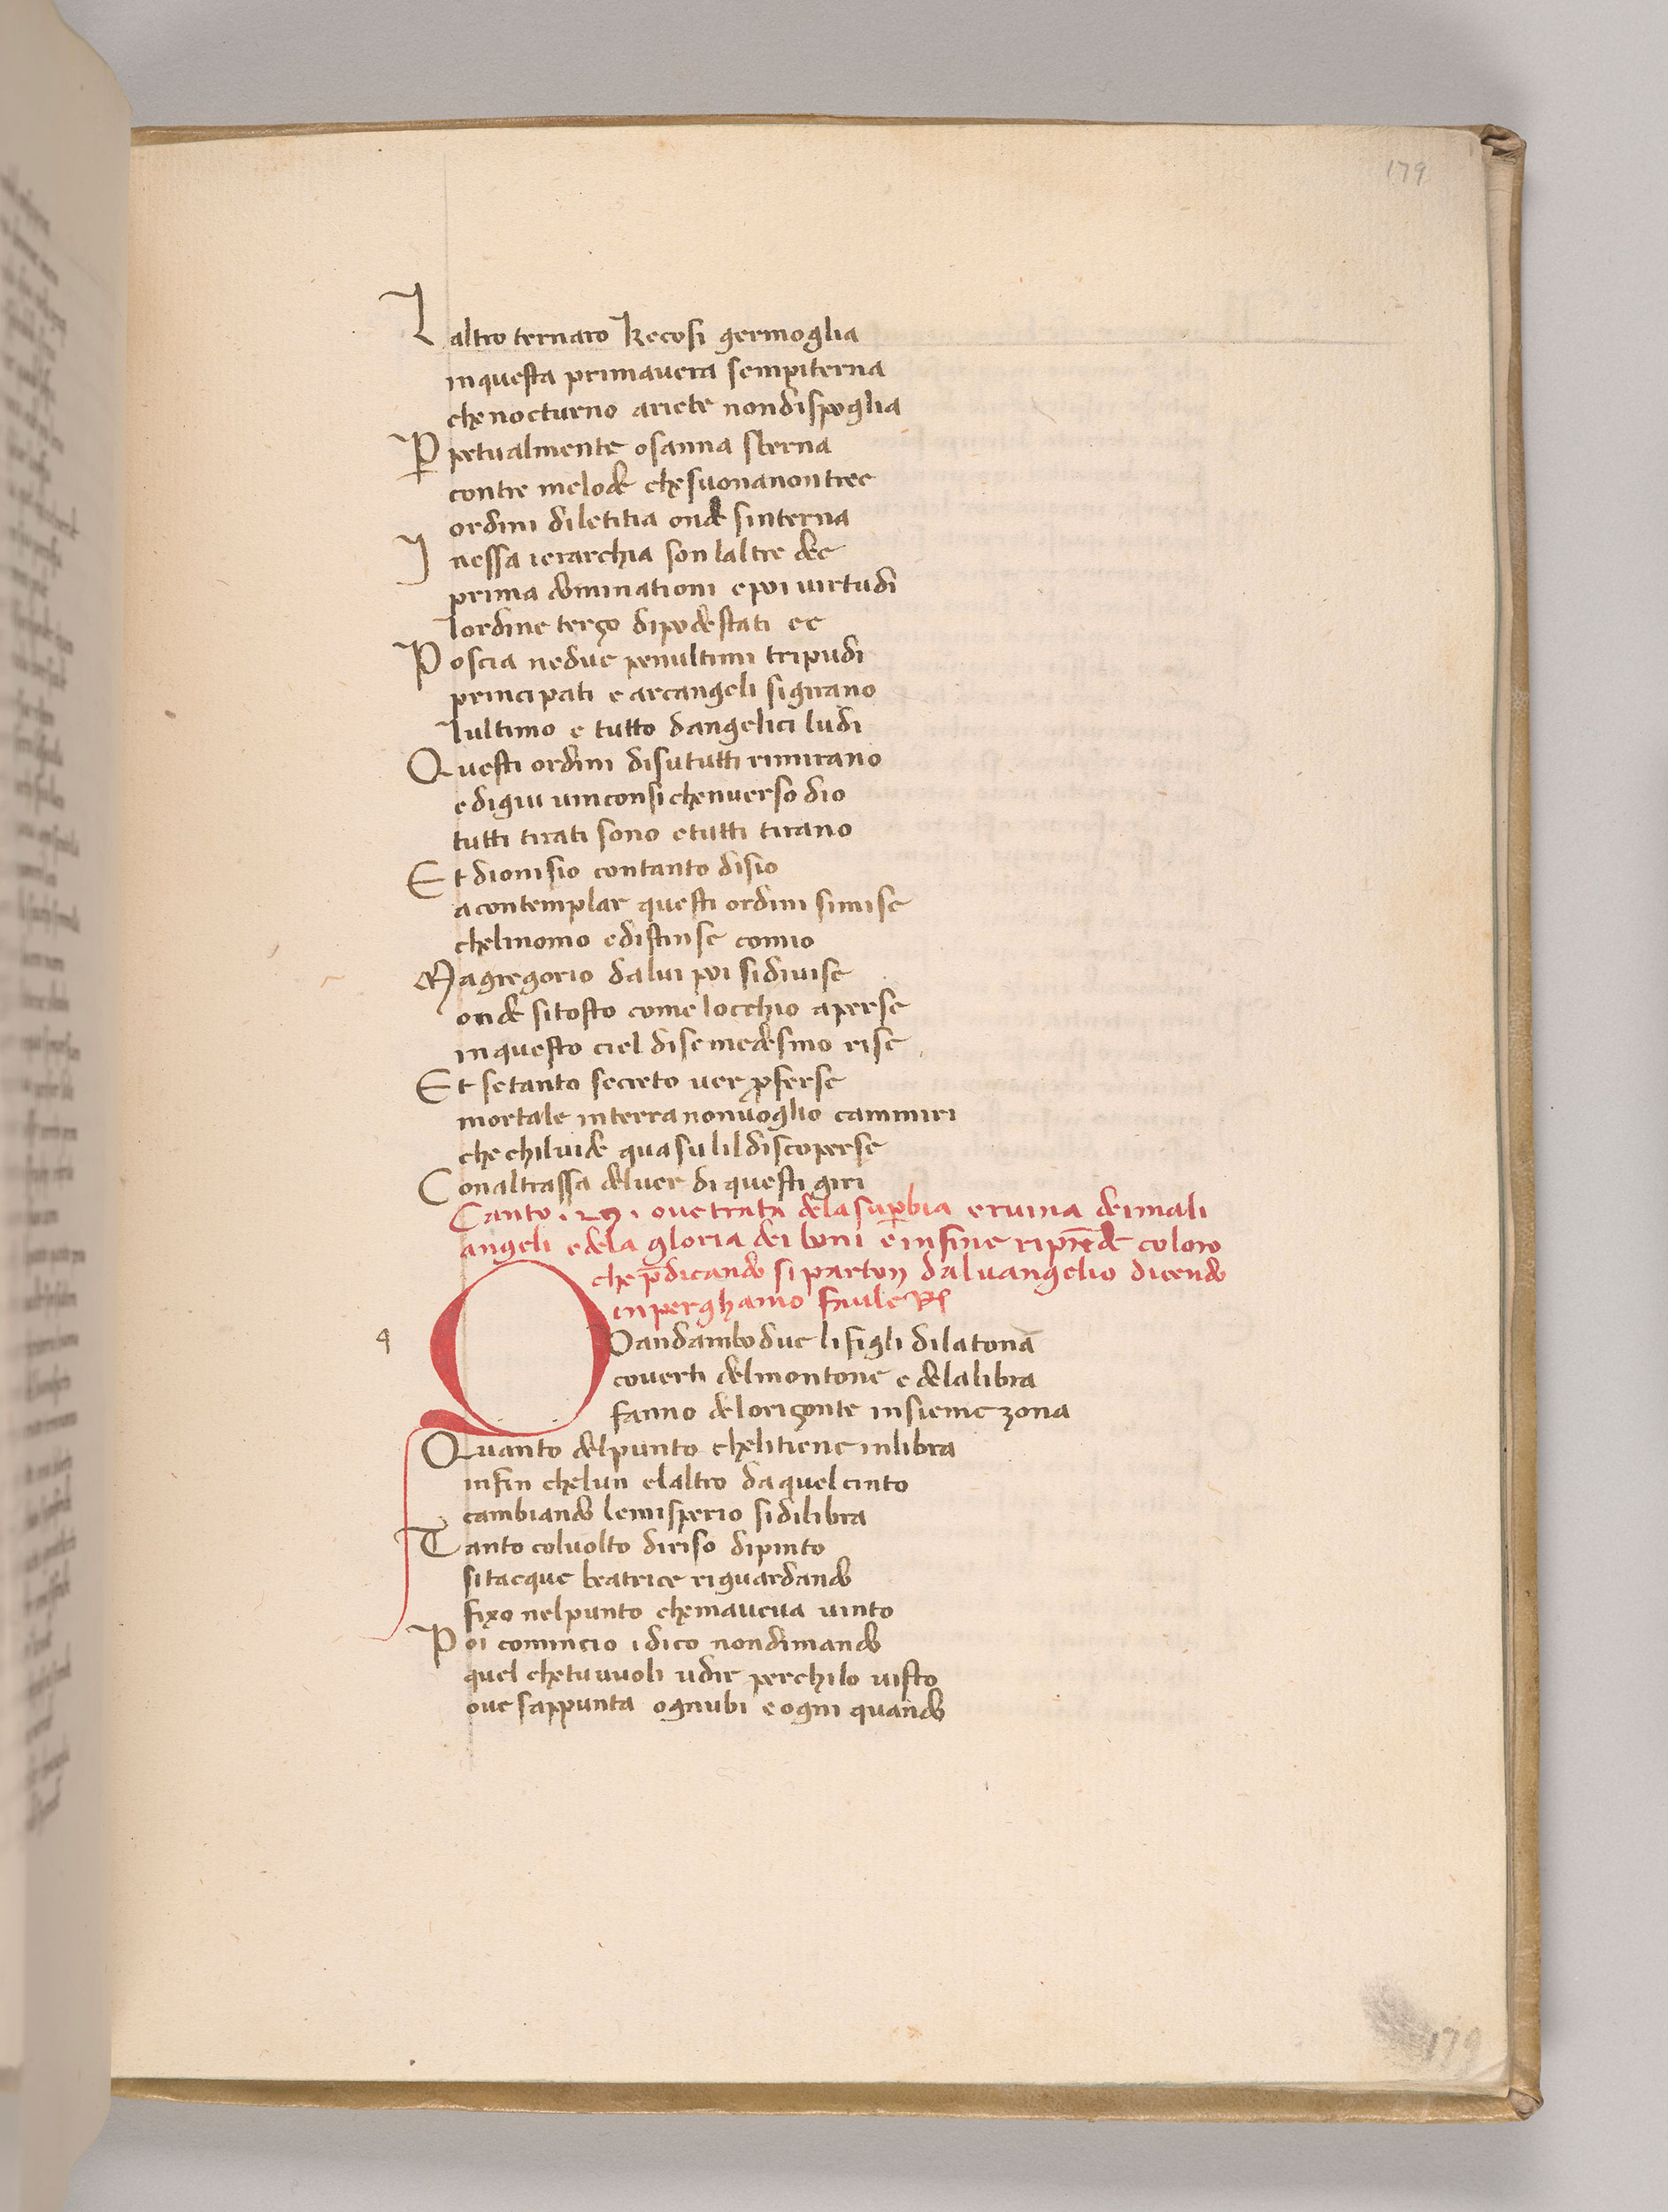 179
L altro ternaro kecosi germoglia
inquesta primavera sempiterna
che nocturno ariete nondispoglia
P petualmente osanna sterna
contre melode chesuonanontree
ordini diletitia onde sinterna
I nessa ierarchia son laltre dee
prima dominationi epoi uirtudi
lordine terço dipodestati ee
P oscia nedue penultimi tripudi
principati e arcangeli sigirano
lultimo e tutto dangelici ludi
Q uesti ordini disututti rimirano
edigiu uinconsi chenuerso dio
tutti tirati sono etutti tirano
E t dionisio contanto disio
acontemplar questi ordini simise
chelinomo edistinse comio
M agregorio dalui poi sidiuise
onde sitosto come locchio aperse
inquesto ciel disemedesmo rise
E t setanto secreto uer pferse
mortale interra nonuoglio cammiri
che chiluide quasu lildiscoperse
C onaltrassa deluer di questi giri
Canto . 29 . oue trata dela supbia eruina deimali
angeli edela gloria dei boni einfine riprēde coloro
che pdicando siparton daluangelio dicendo
inperghamo fauole
Q Uandambodue lifigli dilatona
couerti delmontone e delalibra
fanno deloriçonte insieme zona
Q uanto delpunto chelitiene inlibra
infin chelun elaltro daquelcinto
cambiando lemisperio sidilibra
T anto coluolto diriso dipinto
sitacque beatrice riguardando
fixo nelpunto chemaueua uinto
P oi comincio idico nondimando
quel chetuuuoli udir perchilo uisto
oue sappunta ognubi eogni quando
179